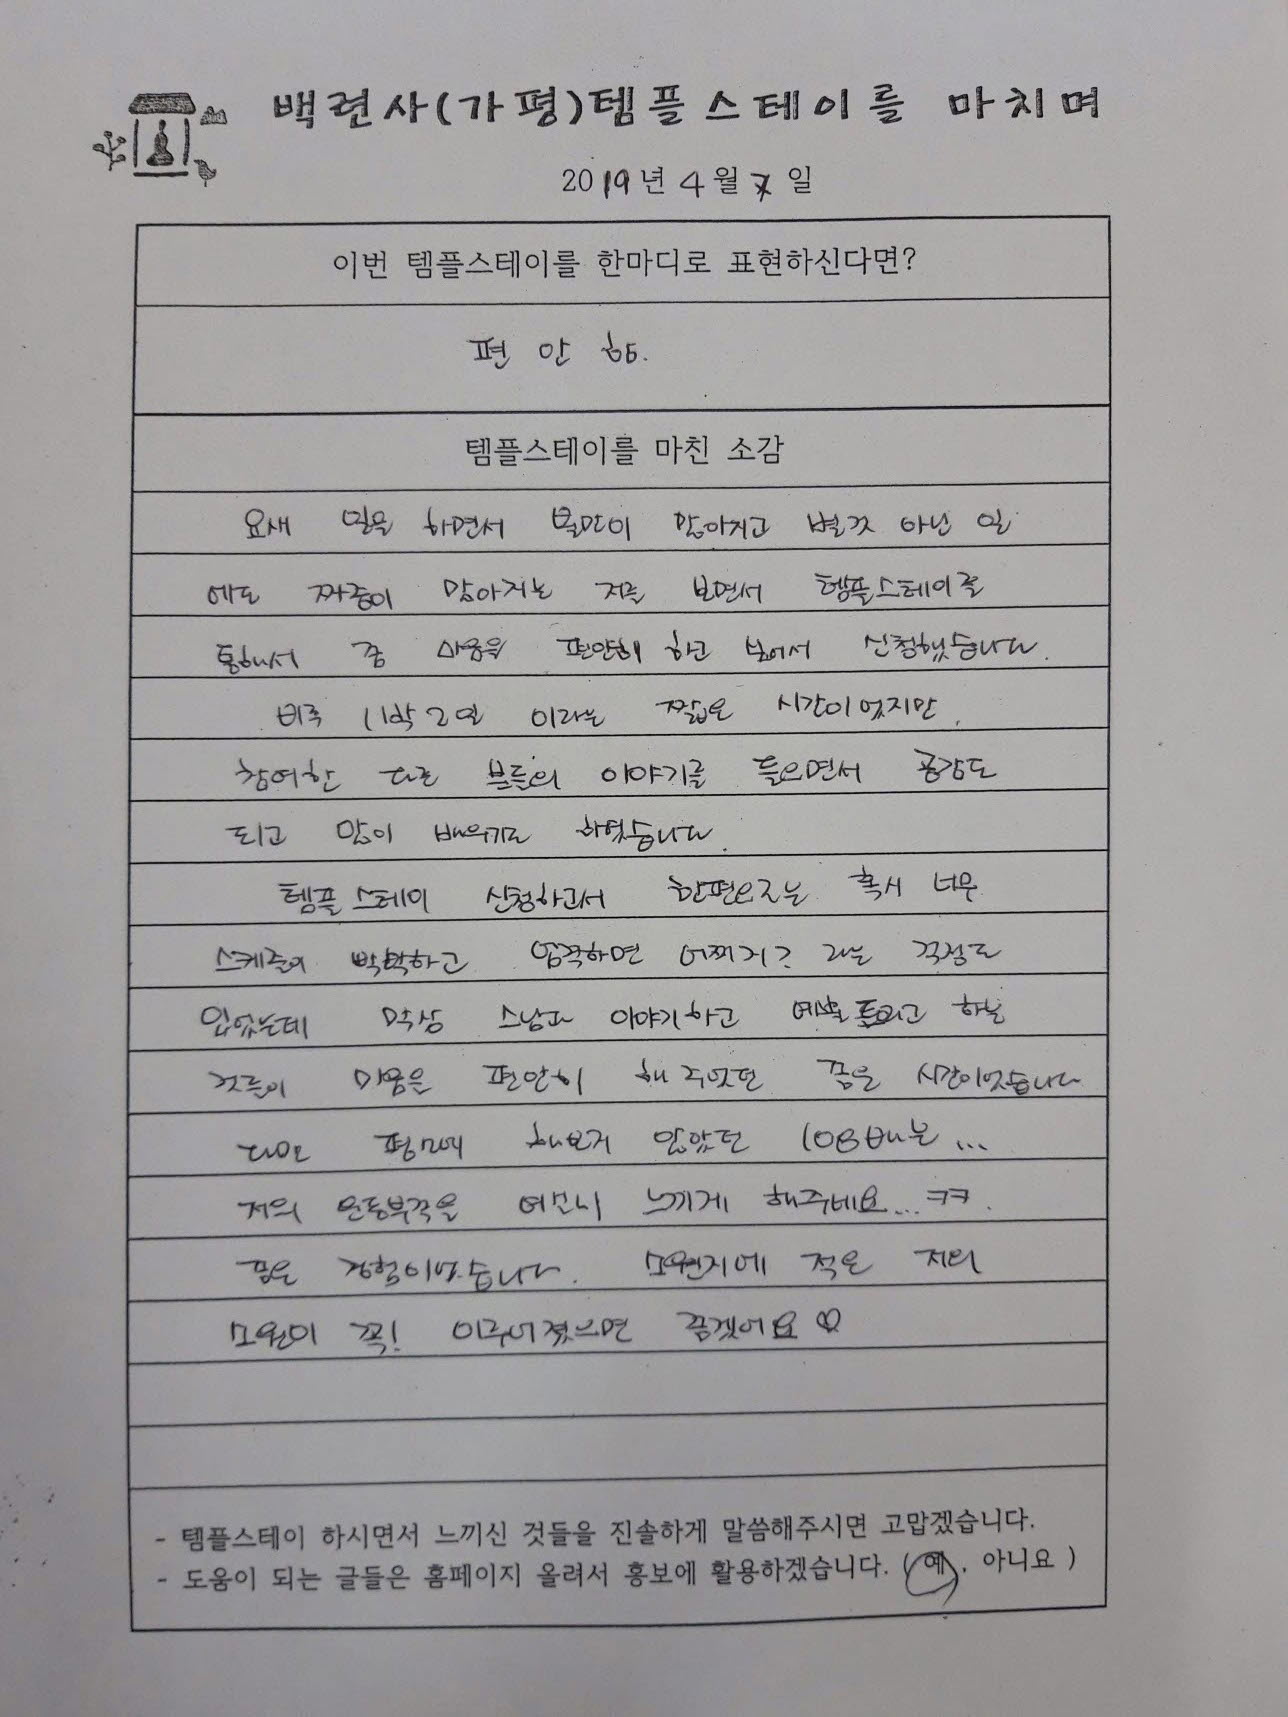 백련사(가평)템플스테이를 마치며
2019년 4월 7일
이번 템플스테이를 한마디로 표현하신다면?
편안함.
템플스테이를 마친 소감
요새 일을 하면서 불만이 많아지고 별것 아닌 일
에도 짜증이 많아지는 저를 보면서 템플스테이를
통해서 좀 마음을 편안히 하고 싶어서 신청했습니다.
비록 1박2일 이라는 짧은 시간이었지만,
참여한 다른 분들의 이야기를 들으면서 공감도
되고 많이 배우기도 하였습니다.
템플스테이 신청하고서 한편으로는 혹시 너무
스케줄이 빡빡하고 엄격하면 어쩌지? 라는 걱정도
있었는데 막상 스님과 이야기하고 예불드리고 하는
것들이 마음을 편안히 해 주었던 좋은 시간이었습니다
다만 평소에 해보지 않았던 108배는...
저의 운동부족을 여실히 느끼게 해주네요... ㅋㅋ.
좋은 경험이었습니다. 소원지에 적은 저의
소원이 꼭! 이루어졌으면 좋겠어요♡
- 템플스테이 하시면서 느끼신 것들을 진솔하게 말씀해주시면 고맙겠습니다.
- 도움이 되는 글들은 홈페이지 올려서 홍보에 활용하겠습니다. ( 예 , 아니요 )